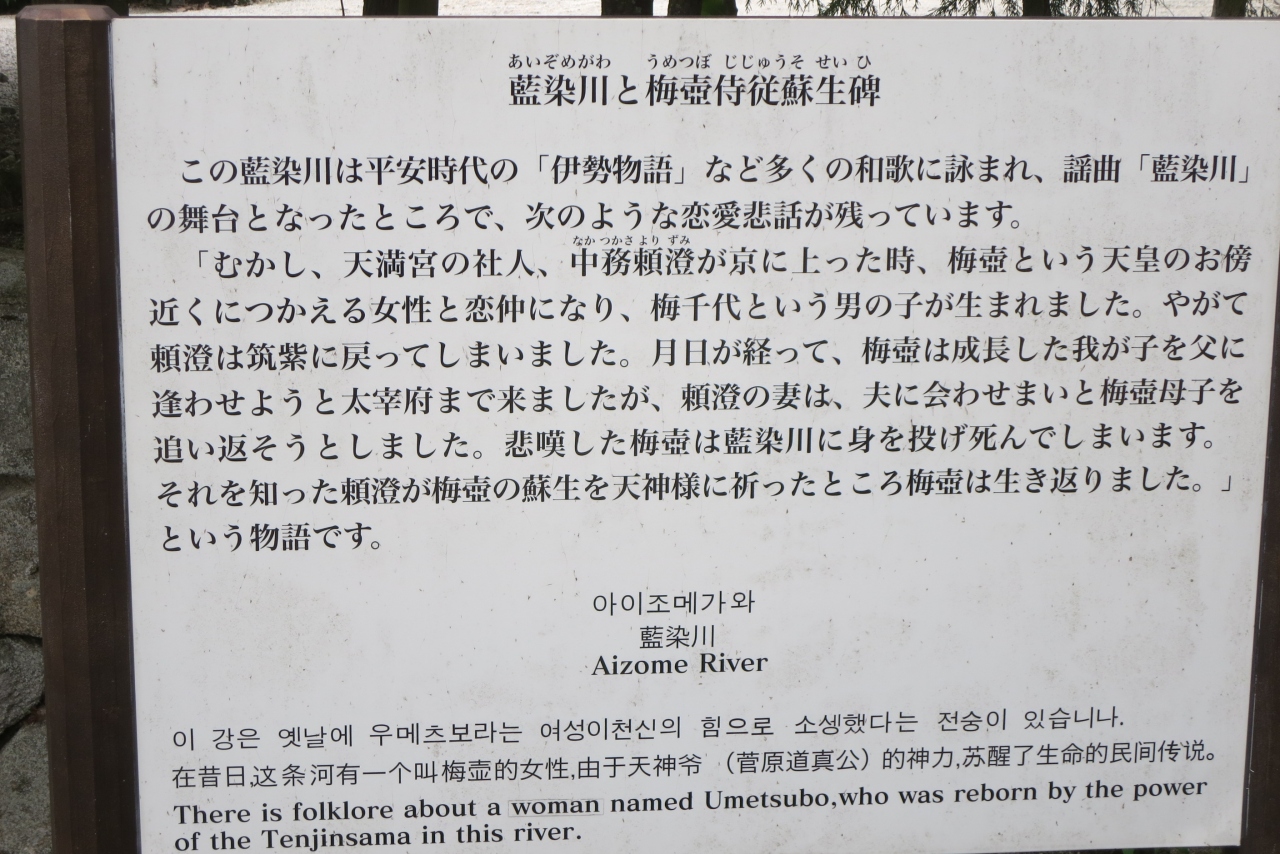 あいぞめがわ　うめつぼ じじゅうそ せい ひ
藍染川と梅壺侍従蘇生碑
この藍染川は平安時代の「伊勢物語」など多くの和歌に詠まれ、謡曲「藍染川」
の舞台となったところで、次のような恋愛悲話が残っています。
なか つかさ より ずみ
「むかし、天満宮の社人、中務頼澄が京に上った時、梅壺という天皇のお傍
近くにつかえる女性と恋仲になり、梅千代という男の子が生まれました。やがて
頼澄は筑紫に戻ってしまいました。月日が経って、梅壺は成長した我が子を父に
逢わせようと太宰府まで来ましたが、頼澄の妻は、夫に会わせまいと梅壺母子を
追い返そうとしました。悲嘆した梅壺は藍染川に身を投げ死んでしまいます。
それを知った頼澄が梅壺の蘇生を天神様に祈ったところ梅壺は生き返りました。」
という物語です。
아이조메가와
藍染川
Aizome River
이 강은 옛날에 우메츠보라는 여성이천신의 힘으로 소생했다는 전숭이 있습니나.
在昔日,这条河有一个叫梅壶的女性,由于天神爷 （菅原道真公）的神力,苏醒了生命的民间传说。
There is folklore about a woman named Umetsubo,who was reborn by the power
of the Tenjinsama in this river.